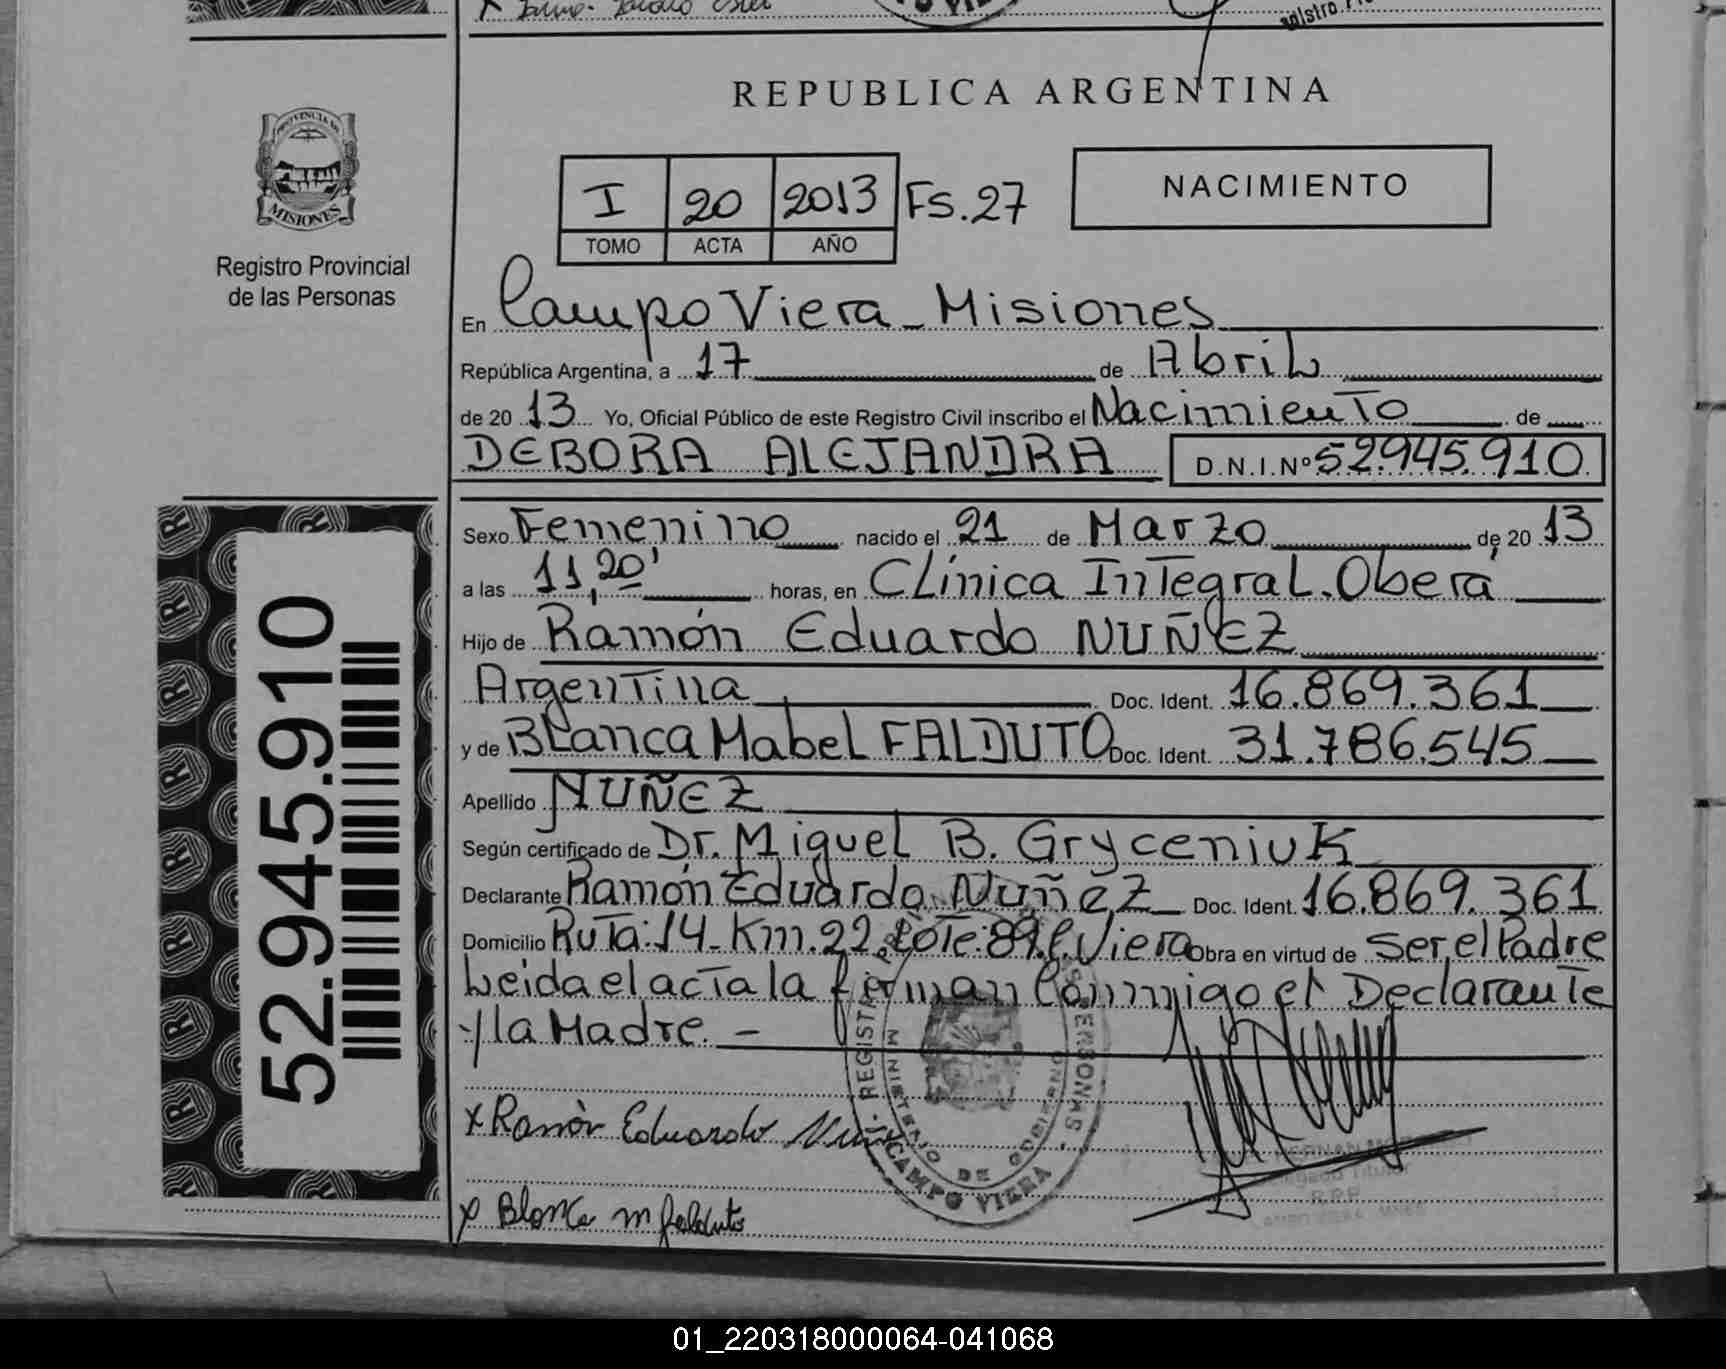 REPUBLICA ARGENTINA
PROVINCIA DE
MISIONES
Registro Provincial
de las Personas
I 20 2013 Fs.27
TOMO ACTA AÑO
NACIMIENTO
En Campo Viera - Misiones
República Argentina, a 17 de Abril
de 20 13 Yo, Oficial Público de este Registro Civil inscribo el Nacimiento de
DEBORA ALEJANDRA D.N.I.Nº 52.945.910
Sexo Femenino nacido el 21 de Marzo de 20 13
a las 11,20' horas, en Clínica Integral. Oberá
Hijo de Ramón Eduardo NUÑEZ
Argentina Doc. Ident. 16.869.361
y de Blanca Mabel FALDUTO Doc. Ident. 31.786.545
Apellido NUÑEZ
Según certificado de Dr. Miguel B. Gryceniuk
Declarante Ramón Eduardo Nuñez Doc. Ident. 16.869.361
Domicilio Ruta: 14 - Km. 22. Lote: 89. C. Viera Obra en virtud de Ser el Padre
Leida el acta la firman Conmigo el Declarante
y la Madre. -
x Ramón Eduardo Nuñe
x Blanca M Falduto
52.945.910
CAMPO VIERA
MINISTERIO DE GOBIERNO
01_220318000064-041068